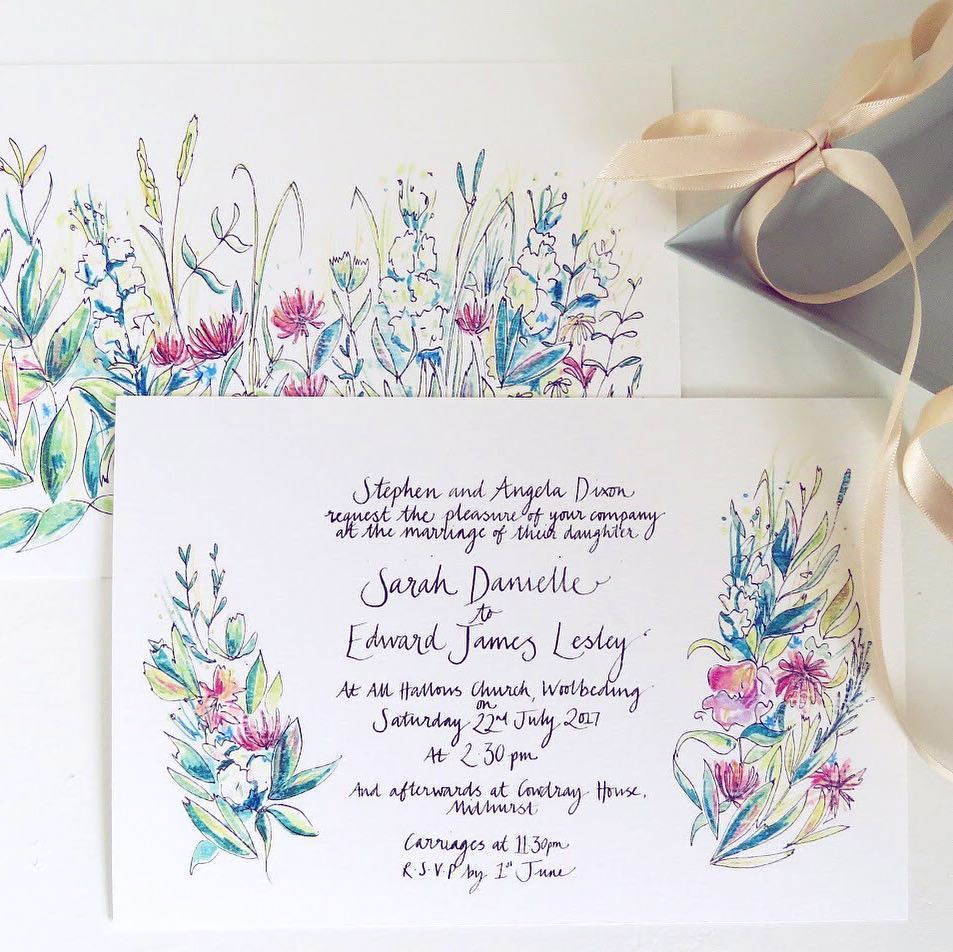 Stephen and Angela Dixon
request the pleasure of your company
at the marriage of their daughter
Sarah Danielle
to
Edward James Lesley
At All Hallows Church, Woolbeding
on
Saturday 22nd July 2017
At 2.30 pm
And afterwards at Cowdray House,
Midhurst
Carriages at 11.30pm
R.S.V.P by 1st June